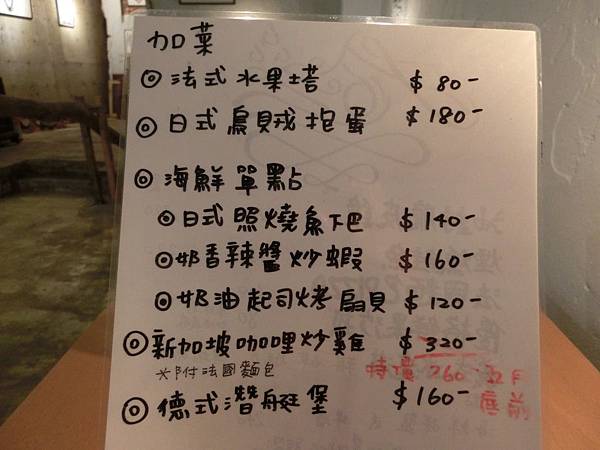 加菜
◎ 法式水果塔 $80-
◎ 日式烏賊抱蛋 $180-
◎ 海鮮單點
⊙日式照燒魚下巴 $140-
⊙邯香辣醬炒蝦 $160-
⊙奶油起司烤扇貝 $120-
◎新加坡咖哩炒雞 $320-
※附法國麵包 特價260 12月
◎德式潛艇堡 $160- 底前